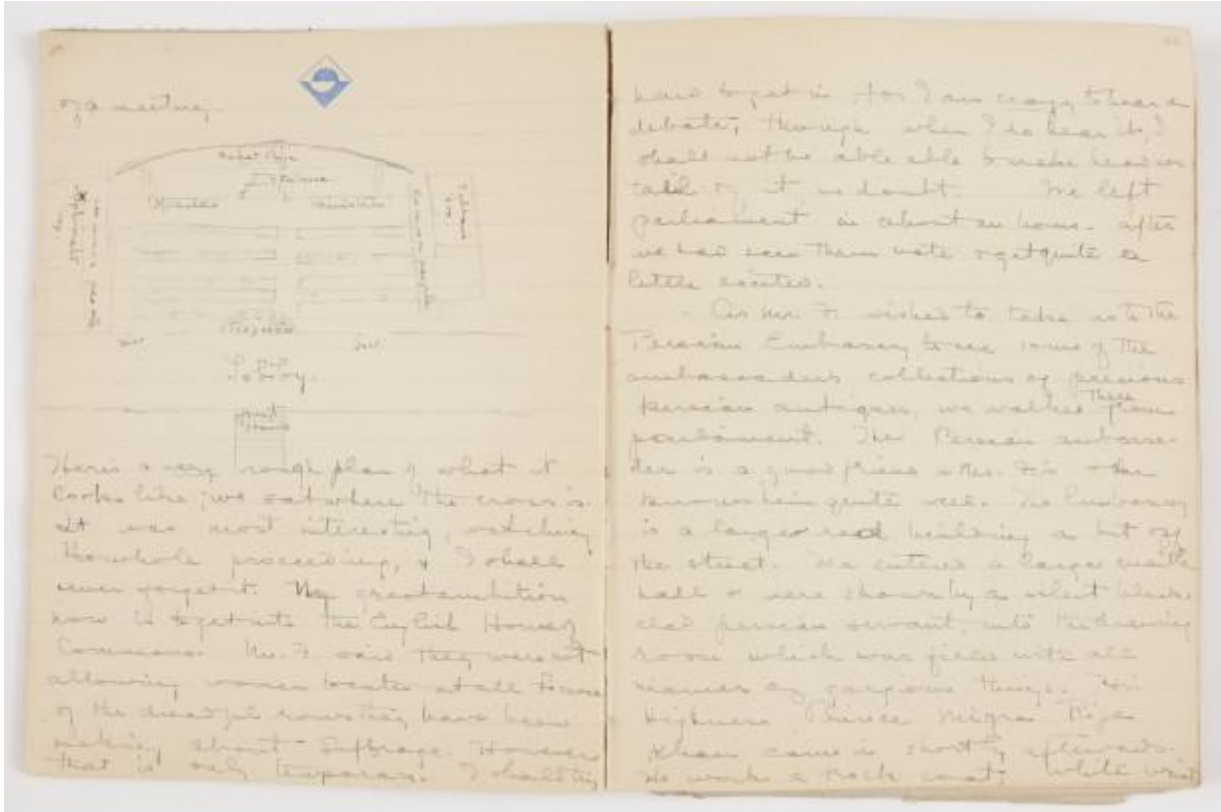 of a meeting
Ministers
Lobby.
Here's a very rough plan of what it
looks like; we sat where the cross is.
It was most interesting, watching
the whole proceeding, & I shall
never forget it. My great ambition
now is to get into the English House of
Commons. Mr. F. said they weren't
allowing women to enter at all because
of the dreadful rows they have been
making about Suffrage. However
that is only temporary. I shall try
have to get in, for I am crazy to hear a
debate, though when I do hear it, I
shall not be able able to make head or
tail of it no doubt. We left
parliament in about an hour. after
we had seen them vote & get quite a
little excited.
- As Mr. F. wished to take us to the
Persian Embassy to see some of the
ambassador's collections of precious
persian antiques, we walked there from
parliament. The Persian ambassa-
dor is a great friend of Mr. F's & he
knows him quite well. The Embassy
is a large red building a bit off
the street. We entered a large
hall & were shown by a silent black
clad persian servant, into the drawing
room which was filled with all
manner of gorgeous things. His
Highness Prince Riza
Khan came in shortly afterwards.
He work a frock coat, white